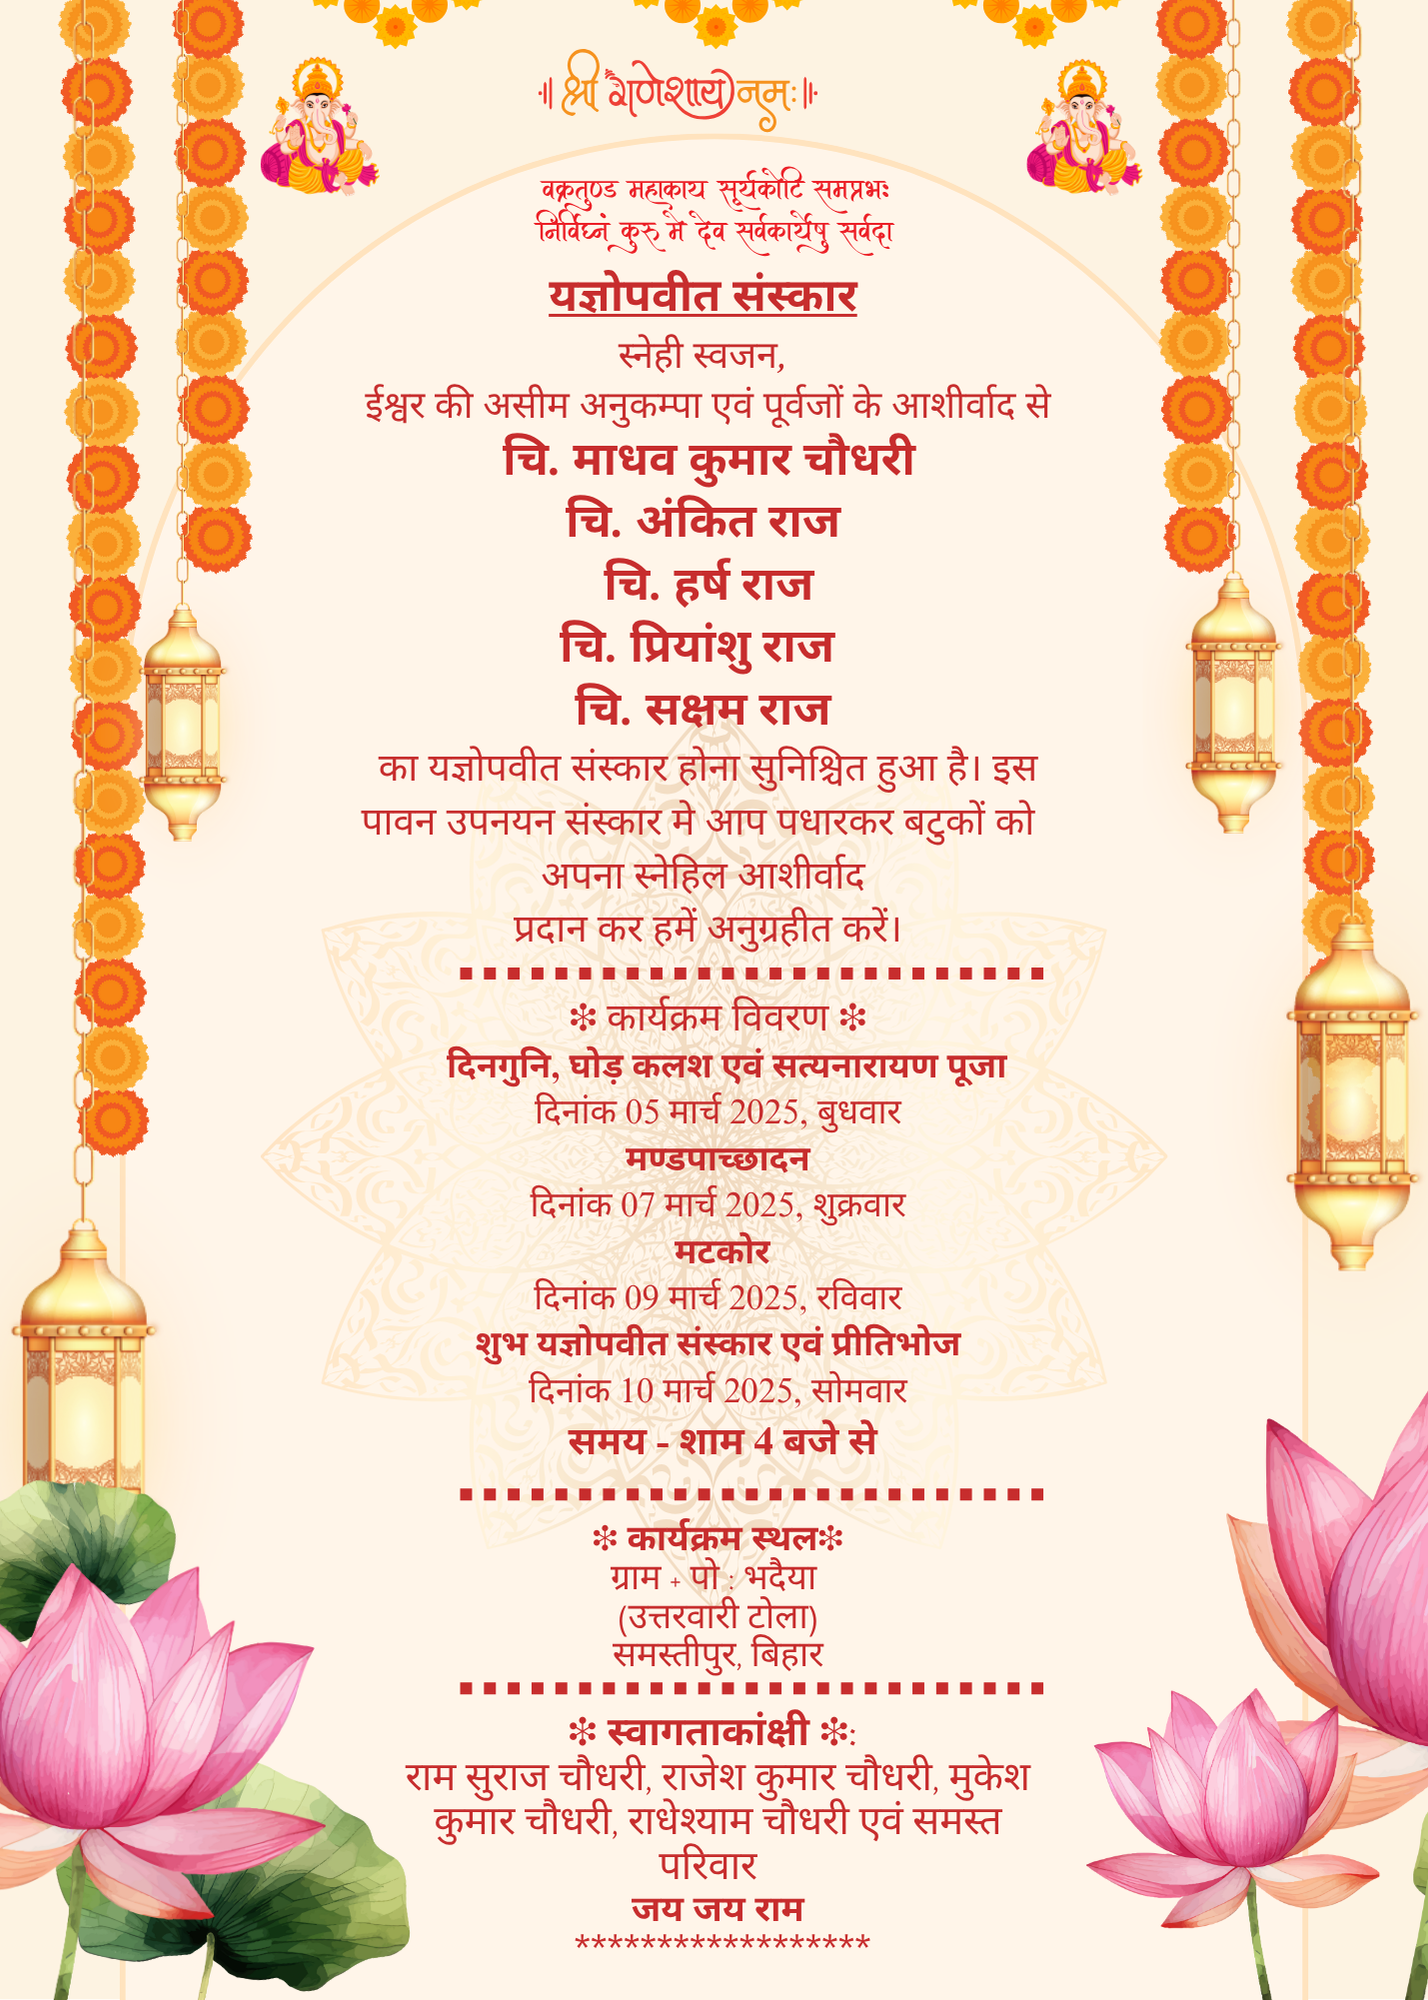 ॥ श्री गणेशाय नमः ॥
वक्रतुण्ड महाकाय सूर्यकोटि समप्रभः
निर्विघ्नं कुरु मे देव सर्वकार्येषु सर्वदा
यज्ञोपवीत संस्कार
स्नेही स्वजन,
ईश्वर की असीम अनुकम्पा एवं पूर्वजों के आशीर्वाद से
चि. माधव कुमार चौधरी
चि. अंकित राज
चि. हर्ष राज
चि. प्रियांशु राज
चि. सक्षम राज
का यज्ञोपवीत संस्कार होना सुनिश्चित हुआ है। इस
पावन उपनयन संस्कार मे आप पधारकर बटुकों को
अपना स्नेहिल आशीर्वाद
प्रदान कर हमें अनुग्रहीत करें।
❇ कार्यक्रम विवरण ❇
दिनगुनि, घोड़ कलश एवं सत्यनारायण पूजा
दिनांक 05 मार्च 2025, बुधवार
मण्डपाच्छादन
दिनांक 07 मार्च 2025, शुक्रवार
मटकोर
दिनांक 09 मार्च 2025, रविवार
शुभ यज्ञोपवीत संस्कार एवं प्रीतिभोज
दिनांक 10 मार्च 2025, सोमवार
समय - शाम 4 बजे से
❇ कार्यक्रम स्थल❇
ग्राम + पो : भदैया
(उत्तरवारी टोला)
समस्तीपुर, बिहार
❇ स्वागताकांक्षी ❇:
राम सुराज चौधरी, राजेश कुमार चौधरी, मुकेश
कुमार चौधरी, राधेश्याम चौधरी एवं समस्त
परिवार
जय जय राम
******************